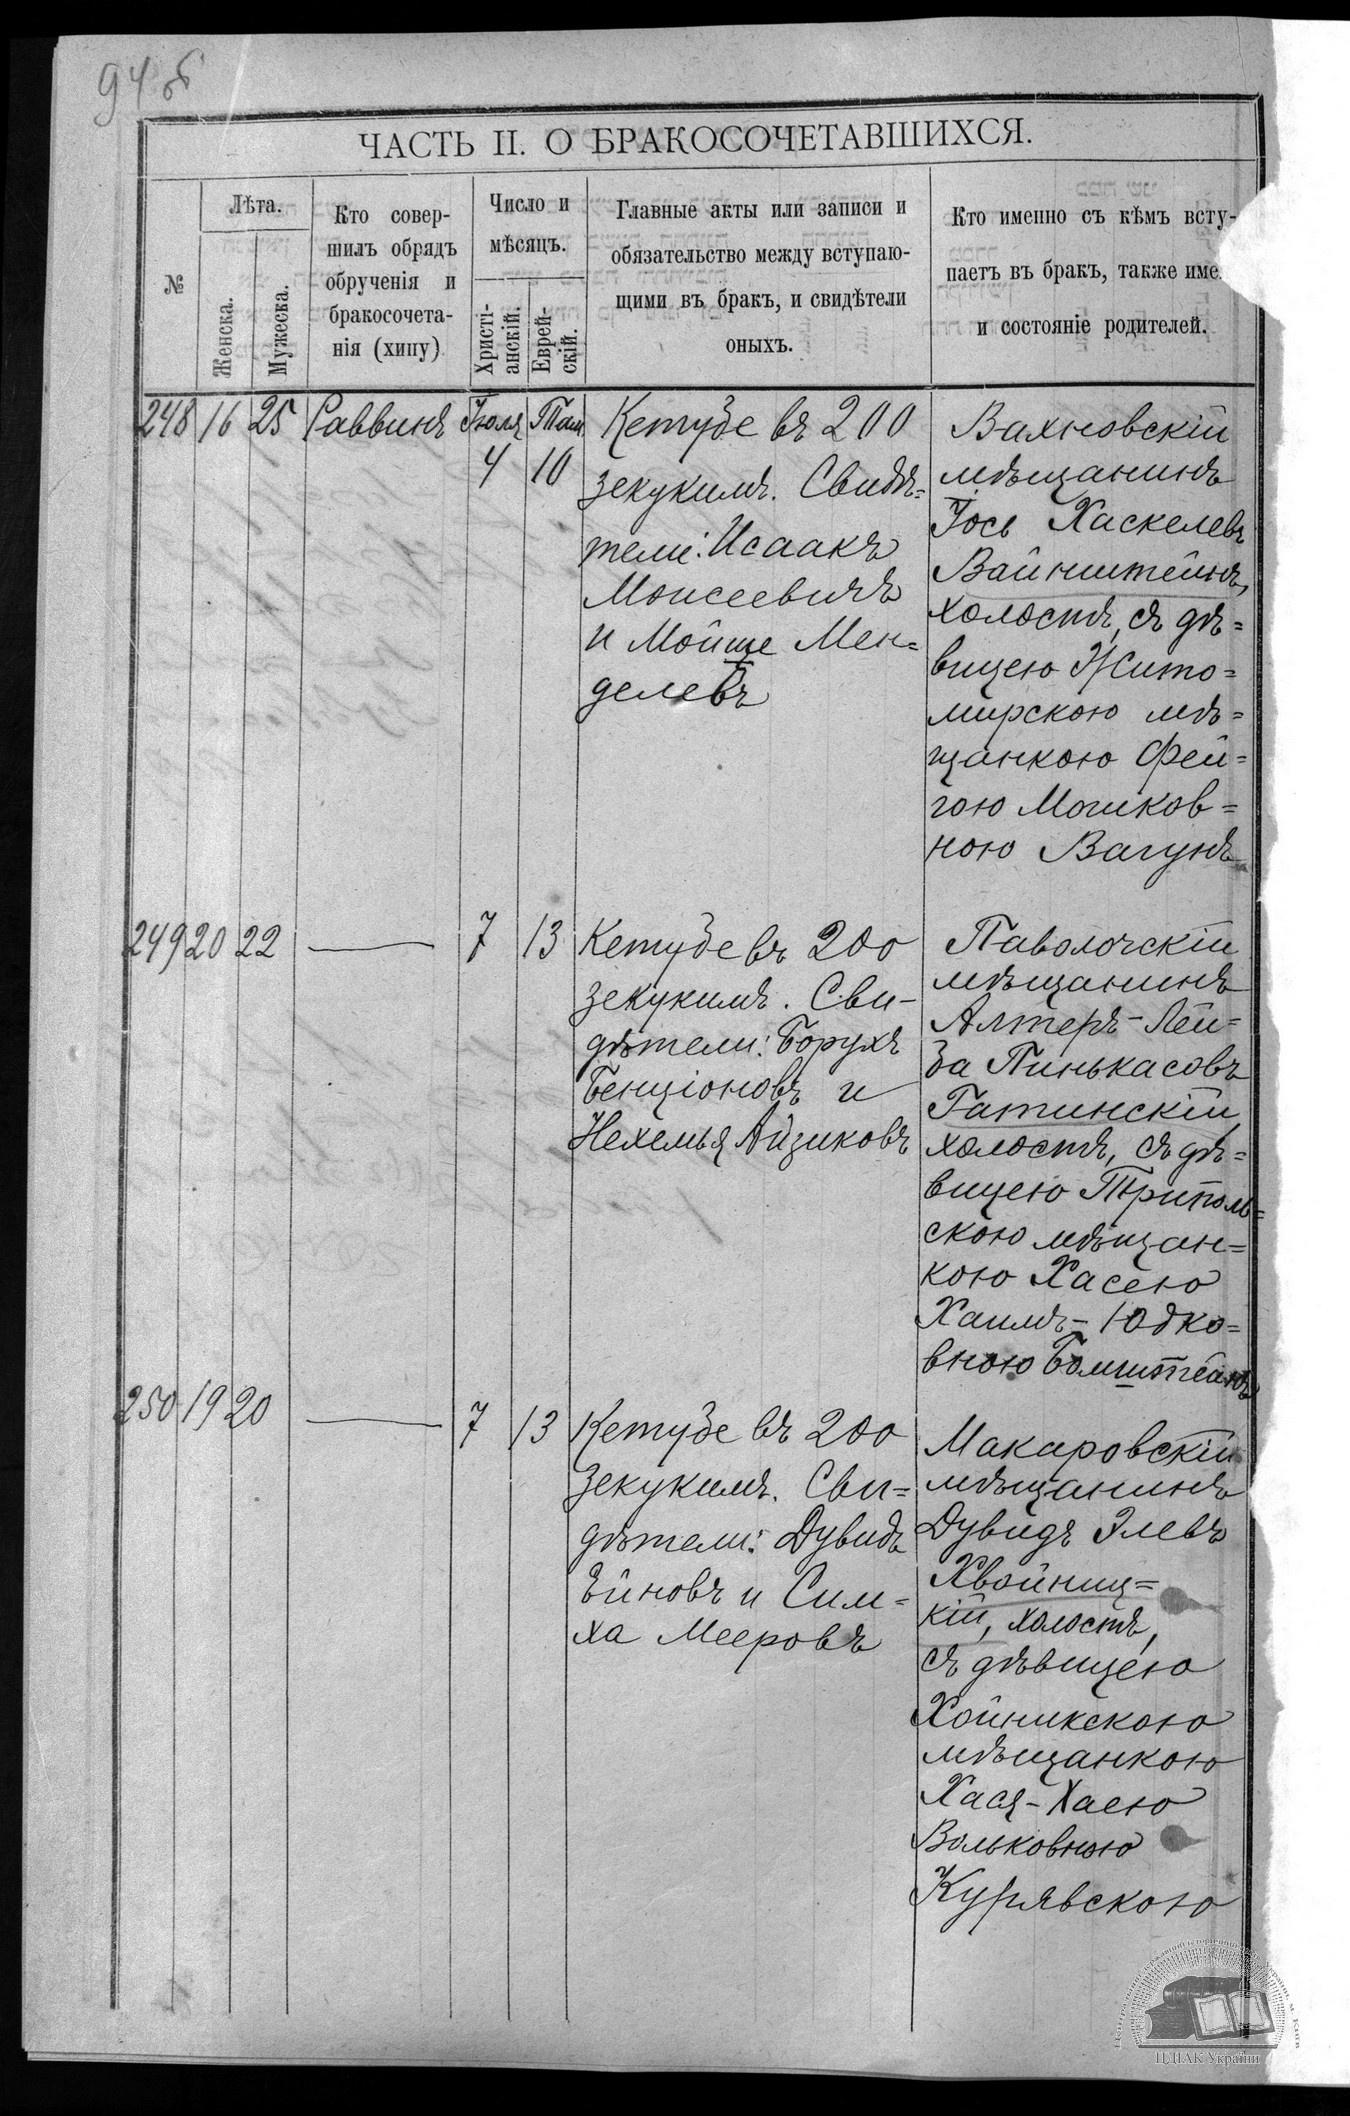 94 об
ЧАСТЬ II. О БРАКОСОЧЕТАВШИХСЯ.
№
Лѣта.
Женска.
Мужеска.
Кто совер-
шилъ обрядъ
обрученія и
бракосочета-
нія (хипу)
Число и
мѣсяцъ.
Христі-
анскій.
Еврей-
скій.
Главные акты или записи и
обязательство между вступаю-
щими въ бракъ, и свидѣтели
оныхъ.
Кто именно съ кѣмъ всту-
паетъ въ бракъ, также име
и состояніе родителей.
248 16 25 Раввинъ Іюля 4 Там. 10
Кетубе въ 200
зекукимъ. Свидѣ=
тели: Исаакъ
Моисеевичъ
и Мойше Мен=
делевъ
Вахновскій
мѣщанинъ
Іось Хаскелевъ
Вайнштейнъ,
холостъ, съ дѣ=
вицею Жито=
мирскою мѣ=
щанкою Фей=
гою Мошков=
ною Вагунъ
249 20 22 — 7 13
Кетубе въ 200
зекукимъ. Сви-
дѣтели: Борухъ
Бенціоновъ и
Нехемья Айзиковъ
Паволочскій
мѣщанинъ
Алтеръ-Лей=
ба Пинькасовъ
Гатинскій,
холостъ, съ дѣ=
вицею Триполь=
скою мѣщан=
кою Хасею
Хаимъ-Юдко=
вною
250 19 20 — 7 13
Кетубе въ 200
зекукимъ. Сви=
дѣтели: Дувидъ
Ейновъ и Сим=
ха Мееровъ
Макаровскій
мѣщанинъ
Дувидъ Элевъ
Хвойниц=
кій, холостъ,
съ дѣвицею
Хойникскою
мѣщанкою
Хася-Хаею
Вольковною
Курявскою
ЦДІАК України